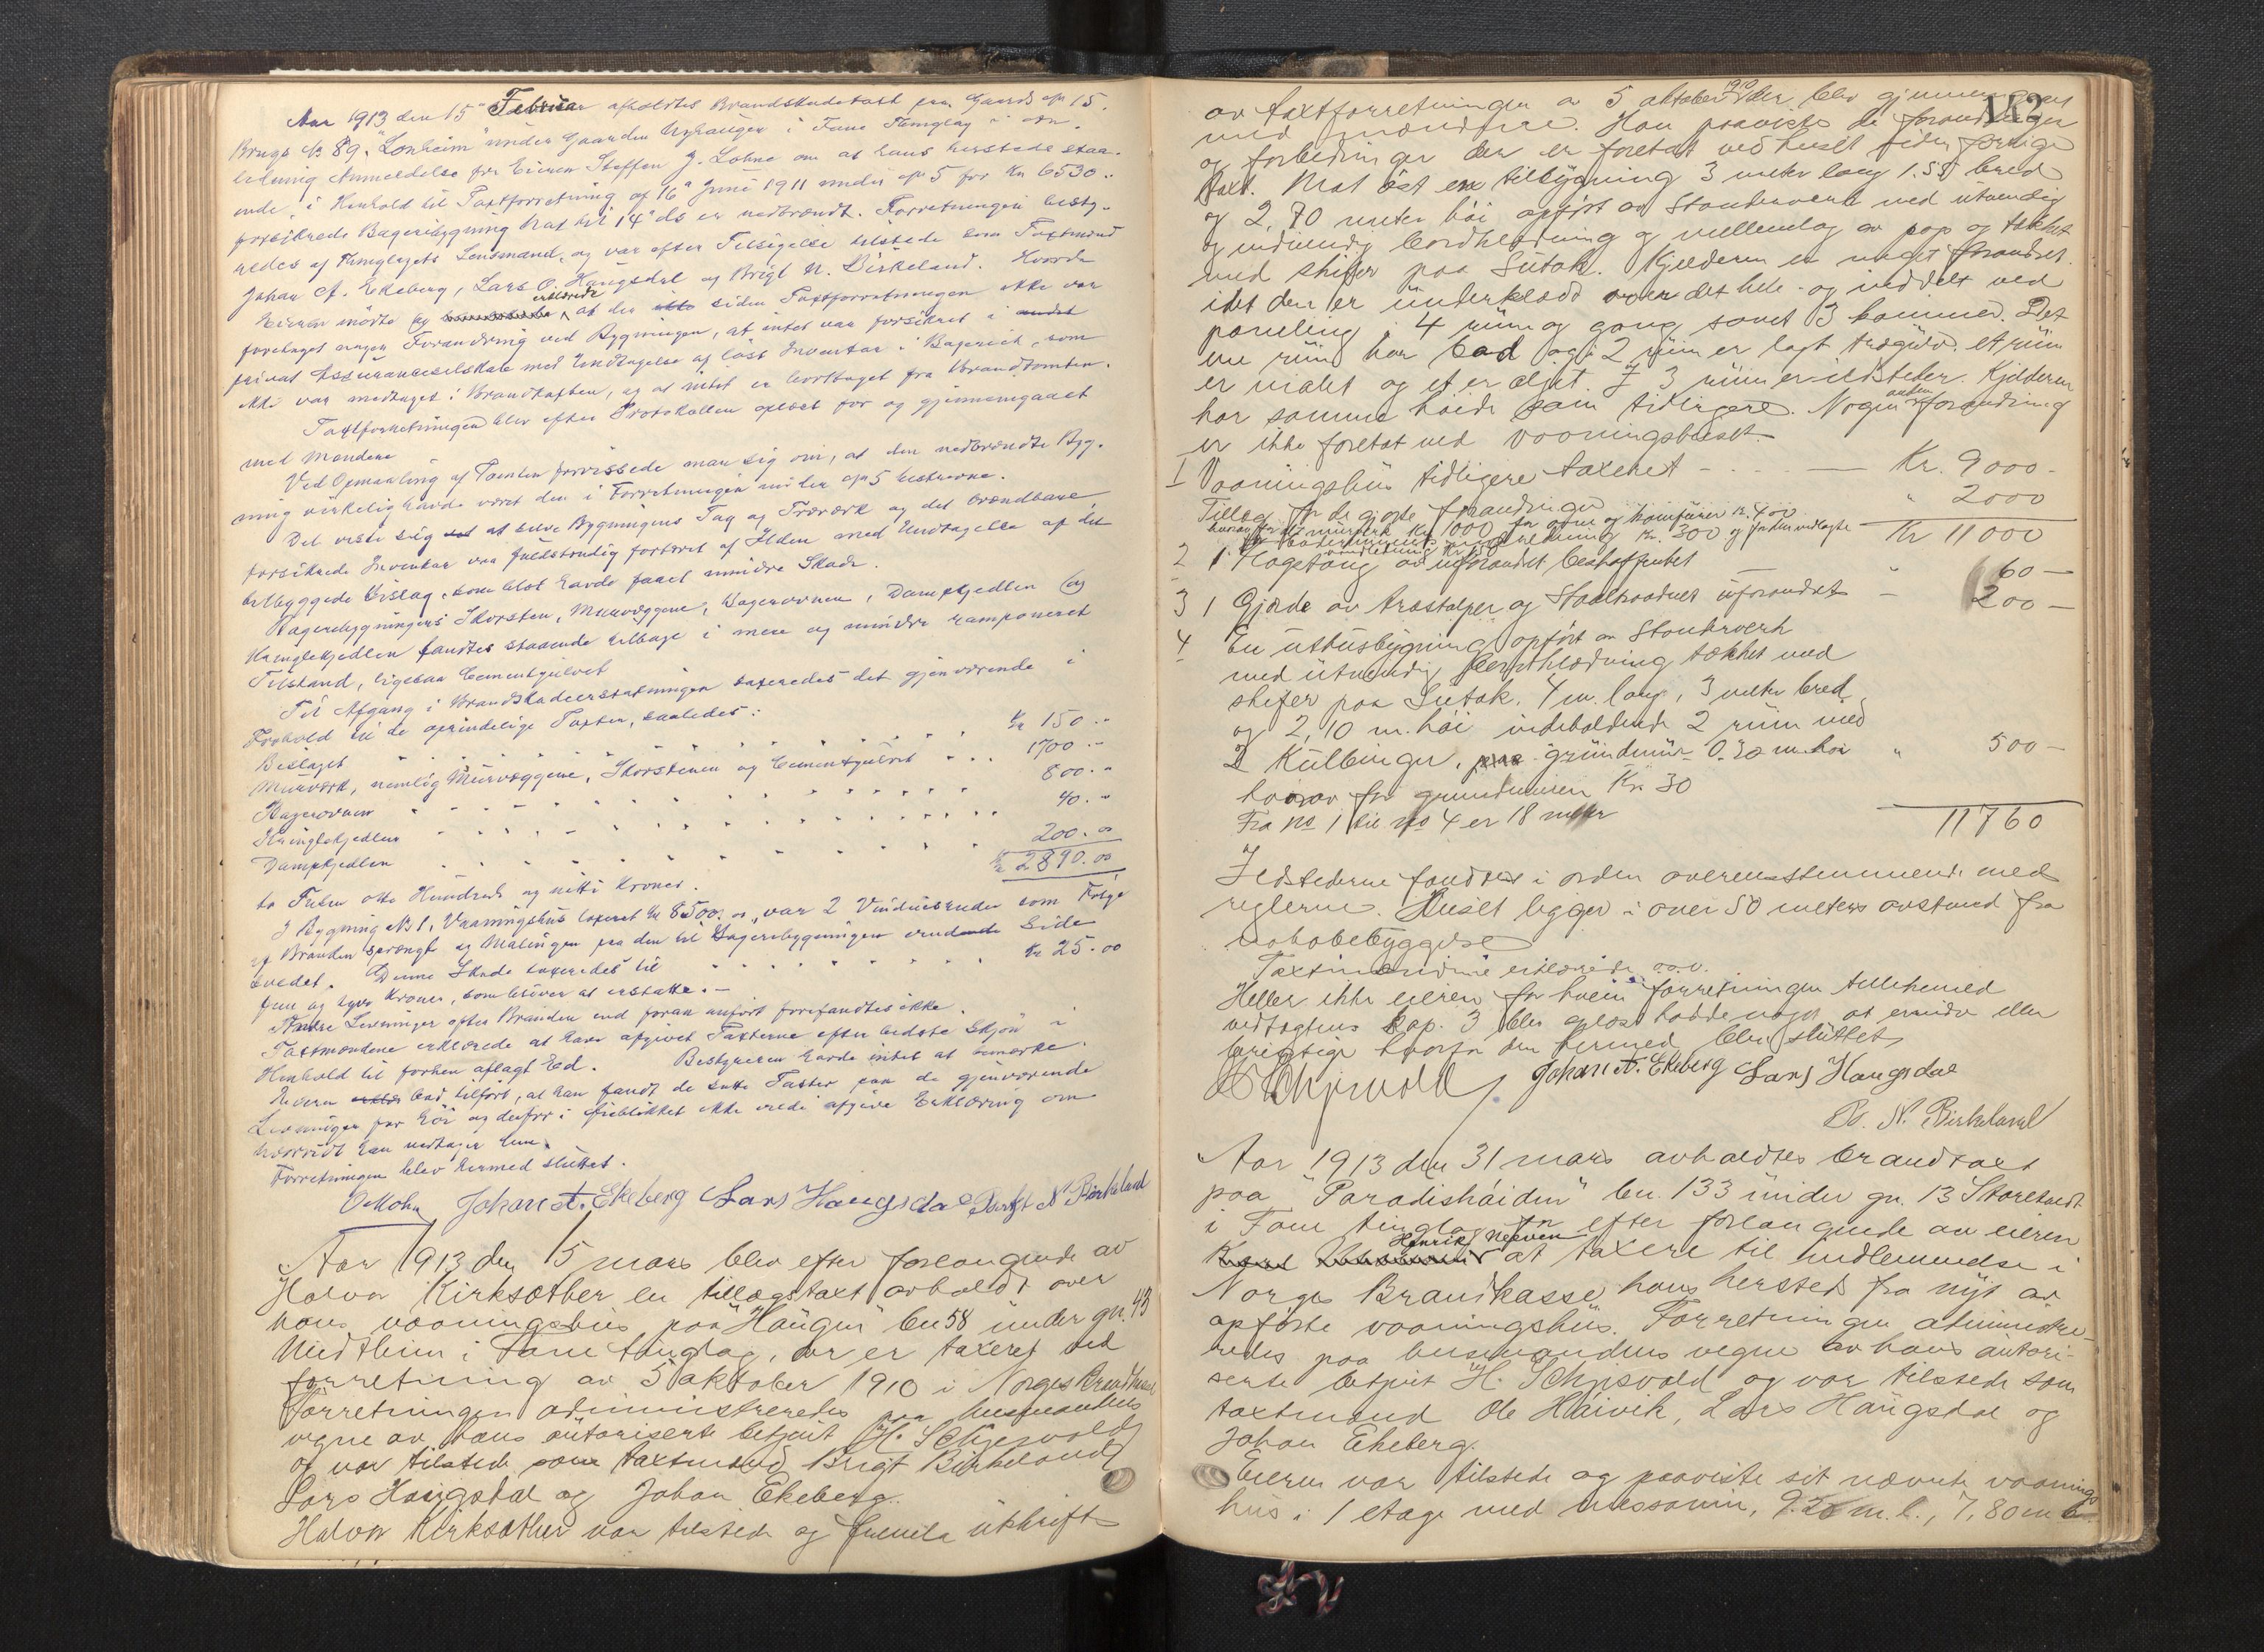 Aar 1913 den 15de Februar afholdtes Brandskadetaxt paa Gaards No 15.
Brugs No 89. "Lonheim" under Gaarden Nyhaugen i Fane Thinglag i
ledning Anmeldelse fra Eieren Steffen J. Lohne om at hans hersteds staa-
ende, i Henhold til Taxtforretning af 16de Juni 1911 under No 5 for Kr 6530..
forsikrede Bageribygning Nat til 14de ds er nedbrændt. Forretningen besty-
redes af Thinglagets Lensmand, og var efter Tilsigelse tilstede som Taxtmænd
Johan A. Ekeberg, Lars O. Haugsdal og Brigt N. Birkeland. Hvorda
Eieren mödte og erklærede at der siden Taxtforretningen ikke var
foretaget nogen Forandring ved Bygningen, at intet var forsikret i andet
privat Assuranceselskab med Undtagelse af löst Inventar i Bageriet, som
ikke var medtaget i Brandtaxten, og at intet er borttaget fra Brandtomten.
Taxtforretningen blev efter Protokollen oplæst for og gjennemgaaet
med Mændene
Ved Opmaaling af Tomten forvissede man sig om, at den nedbrændte Byg-
ning virkelig havde været den i Forretningen under No 5 beskrevne.
Det viste sig at selve Bygningens Tag og Træværk og det brændbare,
forsikrede Inventar var fuldstændig fortæret af Ilden med Undtagelse af det
tilbyggede Bislag, som blot havde faaet mindre Skade.
Bageribygningens Skorsten, Murvæggene, Bagerovnen, Dampkjedlen og
Kringlekjedlen fandtes staaende tilbage i mere og mindre ramponeret
Tilstand, ligesaa Cementgulvet
Til Afgang i Brandskadeerstatningen taxeredes det gjenværende i
Forhold til de oprindelige Taxter, saaledes:
Bislaget " " " " " Kr 150.-
Murværk, nemlig Murvæggene, Skorstenen og Cementgulvet " . . 1700.-
Bagerovnen " " " " " 800.-
Kringlekjedlen " " " " " 40.-
Dampkjedlen " " " " " 200.00
Kr 2890.00
to Tusen otte Hundrede og nitti Kroner.
I Bygning No 1, Vaaningshus taxeret Kr 8500.00, var 2 Vinduesruder som Følge
af Branden sprængt og Malingen paa den til Bageribygningen vendende Side
svedet. Denne Skade taxeredes til " " " " Kr 25.00
fem og tyve Kroner, som bliver at erstatte.-
Andre Levninger efter Branden end foran anfört forefandtes ikke.
Taxtmændene erklærede at have afgivet Taxterne efter bedste Skjön i
Henhold til forhen aflagt Ed. Bestyreren havde intet at bemærke.
Eieren bad tilfört, at han fandt de satte Taxter paa de gjenværende
Levninger for höi og derfor i Öieblikket ikke vilde afgive Erklæring om
hvorvidt han vedtager dem.
Forretningen blev hermed sluttet.
OMohn Johan A. Ekeberg Lars Haugsdal Brigt N Birkeland
Aar 1913 den 15 mars blev efter forlangende av
Halvor Kirksæther en tillægstaxt avholdt over
hans vaaningshus paa "Haugen" bn 58 under gn. 43
Midtheim i Fane tinglag, der er taxeret ved
forretning av 5 oktober 1910 i Norges Brandkasse
Forretningen administreredes paa lensmandens
vegne av hans autoriserte betjent H. Schjesvold
og var tilstede som taxtmænd Brigt Birkeland
Lars Haugsdal og Johan Ekeberg.
Halvor Kirksæther var tilstede og fremla utskrift
av taxtforretningen av 5 oktober 1910 der blev gjennemgaaet
med mændene. Han paaviste de forandringer
og forbedringer der er foretat ved huset siden forrige
taxt. Mot öst en tilbygning 3 meter lang 1.55 bred
og 2,70 meter höi opfört av Stenderverk med utvendig
og indvendig bordklædning og mellemlag av pap og tækket
med skifer paa Sutak. Kjelderen er noget forandret
idet den er underklædd over det hele og inddelt ved
paneling i 4 rum og gang samt 3 kammer. Det
ene rum har bad og i 2 rum er lagt trægulv. et rum
er malet og et er oljet. I 3 rum er ildsteder. Kjelderen
har samme höide som tidligere. Nogen anden forandring
er ikke foretat ved vaaningshuset.
1 Vaaningshus tidligere taxeret - - - - Kr. 9000.-
Tillæg for de gjorte forandringer " 2000
hvorav for murverk Kr. 1000 for ovne og komfurer Kr. 400
Kr. 300 og for den nedlagte Kr 11000
vandledning Kr 150
2 1 Flagstang av uforandret beskaffenhet " 60 -
3 1 Gjærde av træstolper og Staaltraadnet uforandret - 200 -
4 En uthusbygning opfört av Stenderverk
med utvendig bordklædning tækket med
skifer paa Sutak. 4 m. lang, 3 meter bred
og 2,10 m. höi indeholdende 2 rum med
2 Kulbinger, grundmur 0.30 m. höi " 500 -
hvorav for grundmuren Kr. 30
Fra no 1 til no 4 er 18 meter 11760
Ildstederne fandtes i orden overensstemmende med
reglerne. Huset ligger i over 50 meters avstand fra
nabobebyggelse
Taxtmændene erklærede o.s.v.
Heller ikke eieren for hvem forretningen tillikemed
vedtægtens kap. 3 blev oplæst hadde noget at erindre eller
berigtige hvorfor den dermed blev sluttet.
H Schjesvold Johan A. Ekeberg Lars Haugsdal
B. N. Birkeland
Aar 1913 den 31 mars avholdtes brandtaxt
paa "Paradishöiden" bn. 133 under gn. 13 Storetvedt
i Fane tinglag efter forlangende av eieren
Henrik Neeven at taxere til indlemmelse i
Norges Brandkasse hans hersteds fra nyt av
opförte vaaningshus. Forretningen administre-
redes paa lensmandens vegne av hans autori-
serte betjent H. Schjesvold og var tilstede som
taxtmænd Ole Haivik, Lars Haugsdal og
Johan Ekeberg.
Eieren var tilstede og paaviste sit nævnte vaanings
hus i 1 etage med messanin, 9.20 m. l., 7,80 m b